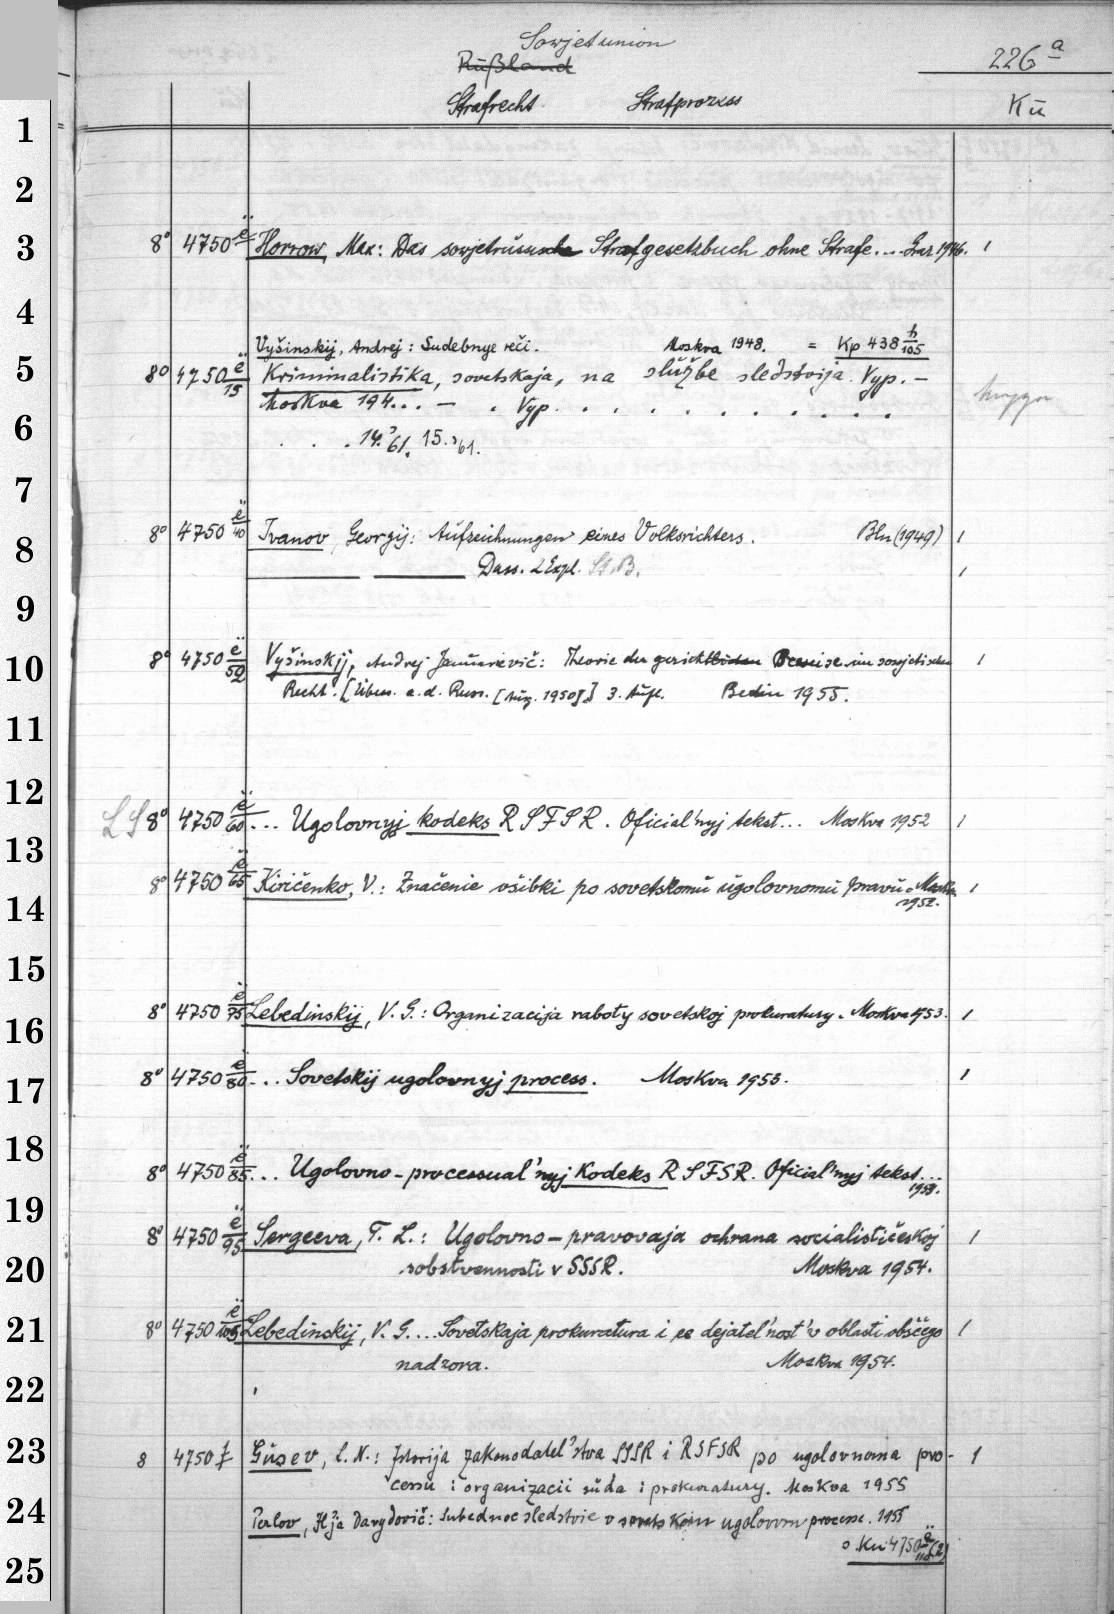 Sowjetunion
Rußland
226 a
Strafrecht Strafprozess Kü
1
2
3 8° 4750 ë Horrow, Max: Das sowjetrussische Strafgesetzbuch ohne Strafe... Graz 1946. 1
4
Vyšinskij, Andrej: Sudebnye reči. Moskva 1948. = Kp 438 h/105
5 8° 4750 ë/15 Kriminalistika, sovetskaja, na službe sledstvija. Vyp. —
Moskva 194... — . Vyp. . . . . . . . . . .
6 . . . 14.'61. 15.'61.
7
8° 4750 ë/40 Ivanov, Georgij: Aufzeichnungen eines Volksrichters. Bln (1949) 1
8 Dass. 2 Expl. St.B. 1
9
10 8° 4750 ë/50 Vyšinskij, Andrej Januarevič: Theorie der gerichtlichen Beweise im sowjetischen 1
Recht. [Übers. a. d. Russ. [Aug. 1950].] 3. Aufl. Berlin 1955.
11
12
LS 8° 4750 ë/60 ... Ugolovnyj kodeks RSFSR. Oficial'nyj tekst... Moskva 1952 1
13
8° 4750 ë/65 Kiričenko, V.: Značenie ošibki po sovetskomu ugolovnomu pravu. Moskva 1
14 1952.
15
8° 4750 ë/75 Lebedinskij, V. G.: Organizacija raboty sovetskoj prokuratury. Moskva 1953. 1
16
17 8° 4750 ë/80 ... Sovetskij ugolovnyj process. Moskva 1953. 1
18
8° 4750 ë/85 ... Ugolovno-processual'nyj Kodeks RSFSR. Oficial'nyj tekst...
1953.
19
8° 4750 ë/95 Sergeeva, T. L.: Ugolovno-pravovaja ochrana socialističeskoj 1
20 sobstvennosti v SSSR. Moskva 1954.
21 8° 4750 ë/105 Lebedinskij, V. G. ... Sovetskaja prokuratura i ee dejatel'nost' v oblasti obščego 1
nadzora. Moskva 1954.
22
23 8 4750 f Gusev, L. N.: Istorija zakonodatel'stva SSSR i RSFSR po ugolovnomu pro- 1
cessu i organizacii suda i prokuratury. Moskva 1955
24 Perlov, Il'ja Davydovič: Sudebnoe sledstvie v sovetskom ugolovnom processe. 1955
o. Ku 4750 ë/110 (2)
25